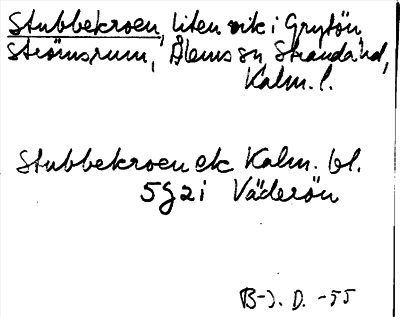 Stubbekroen, liten vik i Grytön,
Strömsrum, Ålems sn, Stranda hd,
Kalm. l.
Stubbekroen ek Kalm. bl.
5g2i Väderön
B-J. D. -55